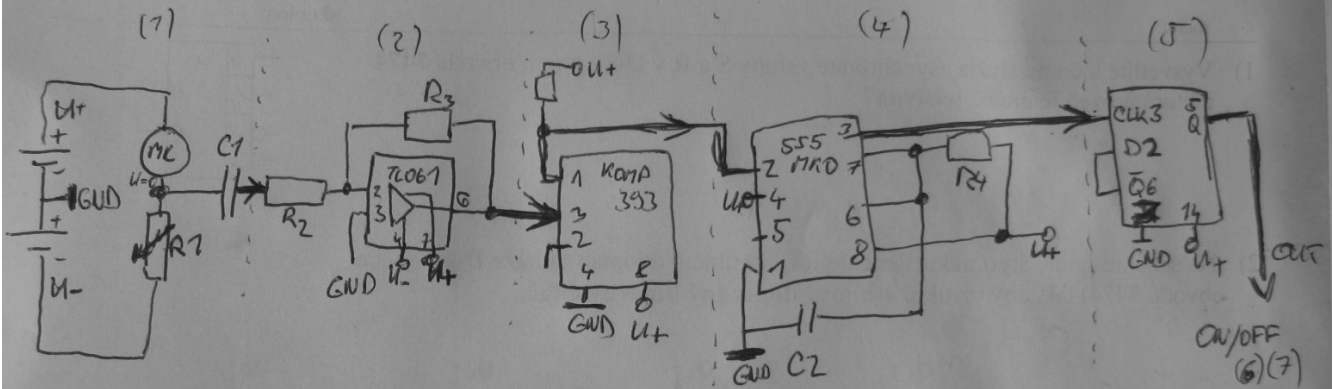 (1)
(2)
(3)
(4)
(5)
U+
+
-
GND
+
-
U-
MK
U=0
R1
C1
R2
R3
TL061
2
3
4
7
6
GND
U-
U+
U+
1
KOMP
393
3
2
4
8
GND
U+
555
MKO
2
U+
4
5
1
3
7
6
8
R4
U+
GND
C2
CLK3
D2
Q6
14
5
Q
GND
U+
OUT
ON/OFF
(6)(7)